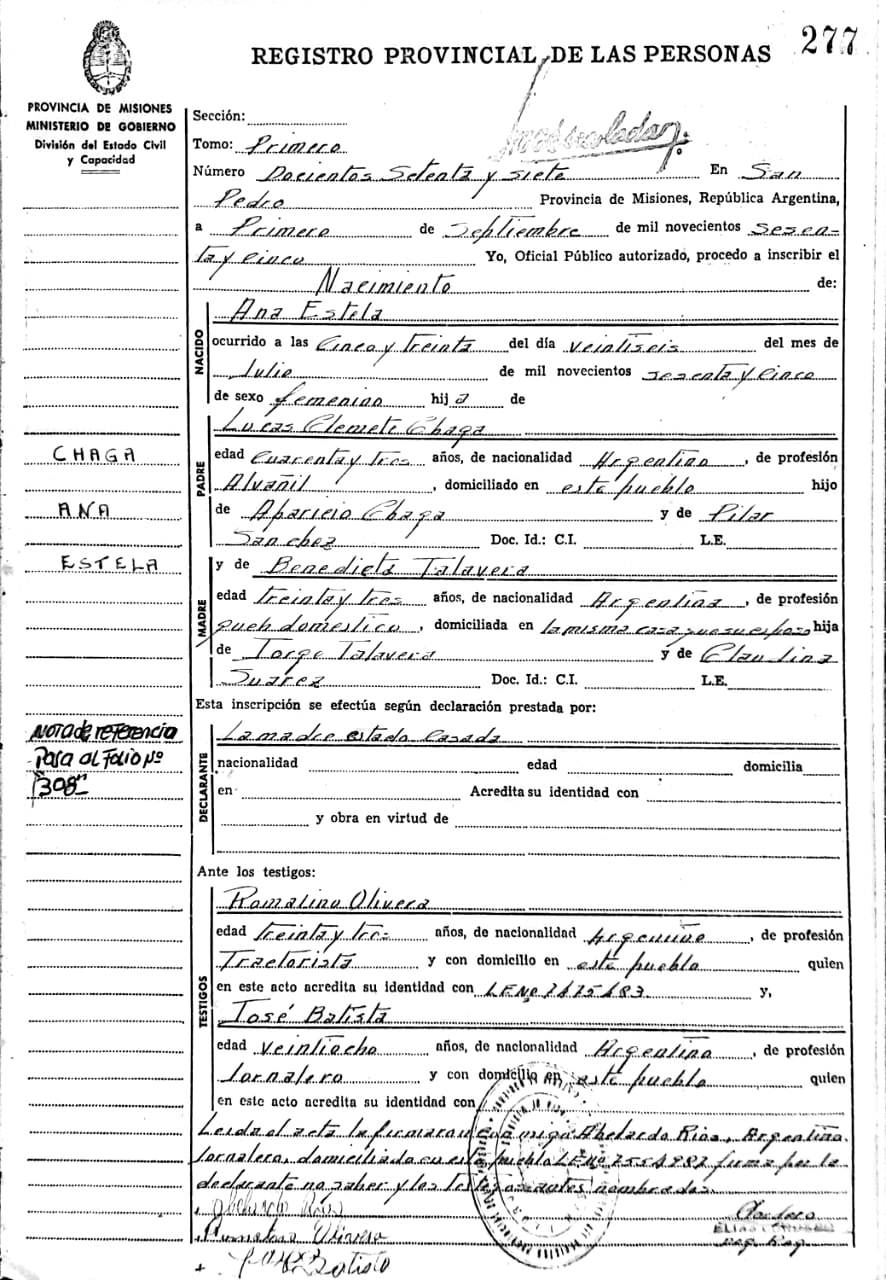 277
REGISTRO PROVINCIAL DE LAS PERSONAS
PROVINCIA DE MISIONES
MINISTERIO DE GOBIERNO
División del Estado Civil
y Capacidad
CHAGA
ANA
ESTELA
NOTA de referencia
Pasa al Folio Nº
308
Sección:
Tomo: Primero
Número Docientos Setenta y siete En San
Pedro Provincia de Misiones, República Argentina,
a Primero de Septiembre de mil novecientos sesen-
ta y cinco Yo, Oficial Público autorizado, procedo a inscribir el
Nacimiento de:
NACIDO
Ana Estela
ocurrido a las Cinco y treinta del día veintiseis del mes de
Julio de mil novecientos sesenta y cinco
de sexo femenino hija de
PADRE
Lucas Clemete Chaga
edad Cuarenta y tres años, de nacionalidad Argentino, de profesión
Alvañil, domiciliado en este pueblo hijo
de Aparicio Chaga y de Pilar
Sanchez Doc. Id.: C.I. L.E.
MADRE
y de Benedicta Talavera
edad treinta y tres años, de nacionalidad Argentina, de profesión
queh domestico, domiciliada en la misma casa que su esposo hija
de Jorge Talavera y de Claudina
Suárez Doc. Id.: C.I. L.E.
Esta inscripción se efectúa según declaración prestada por:
DECLARANTE
La madre estado Casada
nacionalidad edad domicilia
en Acredita su identidad con
y obra en virtud de
Ante los testigos:
TESTIGOS
Romalino Olivera
edad treinta y tres años, de nacionalidad Argentino, de profesión
Tractorista y con domicilio en este pueblo quien
en este acto acredita su identidad con L.E.Nº y,
José Batista
edad veintiocho años, de nacionalidad Argentino, de profesión
Jornalero y con domicilio en este pueblo quien
en este acto acredita su identidad con
Leida el acta la firmaron conmigo Abelardo Rios, Argentino
Jornalero, domiciliado en este pueblo L.E.Nº firma por la
declarante no saber y los testigos antes nombrados.
Abelardo Rios
Romalino Olivera
José Batista